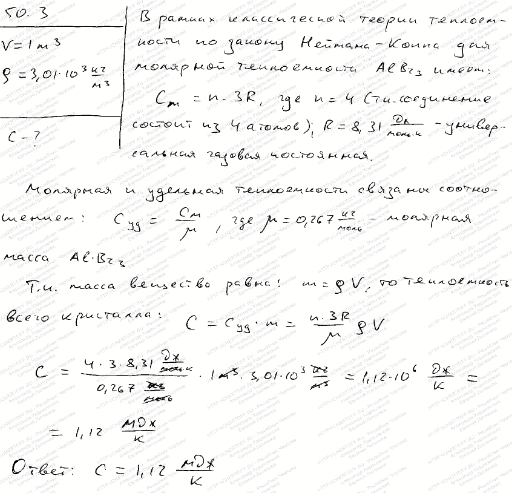 50.3
V = 1 м³
ρ = 3,01·10³ кг/м³
C - ?
В рамках классической теории теплоем-
кости по закону Неймана-Коппа для
молярной теплоемкости AlBr₃ имеем:
Cm = n·3R, где n = 4 (т.к. соединение
состоит из 4 атомов), R = 8,31 Дж/моль·К - универ-
сальная газовая постоянная.
Молярная и удельная теплоемкости связаны соотно-
шением: Cуд = Cм/μ, где μ = 0,267 кг/моль - молярная
масса AlBr₃
Т.к. масса вещества равна: m = ρV, то теплоемкость
всего кристалла: C = Cуд·m = n·3R/μ ρV
C = 4·3·8,31 Дж/моль·К / 0,267 кг/моль · 1 м³ · 3,01·10³ кг/м³ = 1,12·10⁶ Дж/К =
= 1,12 МДж/К
Ответ: C = 1,12 МДж/К